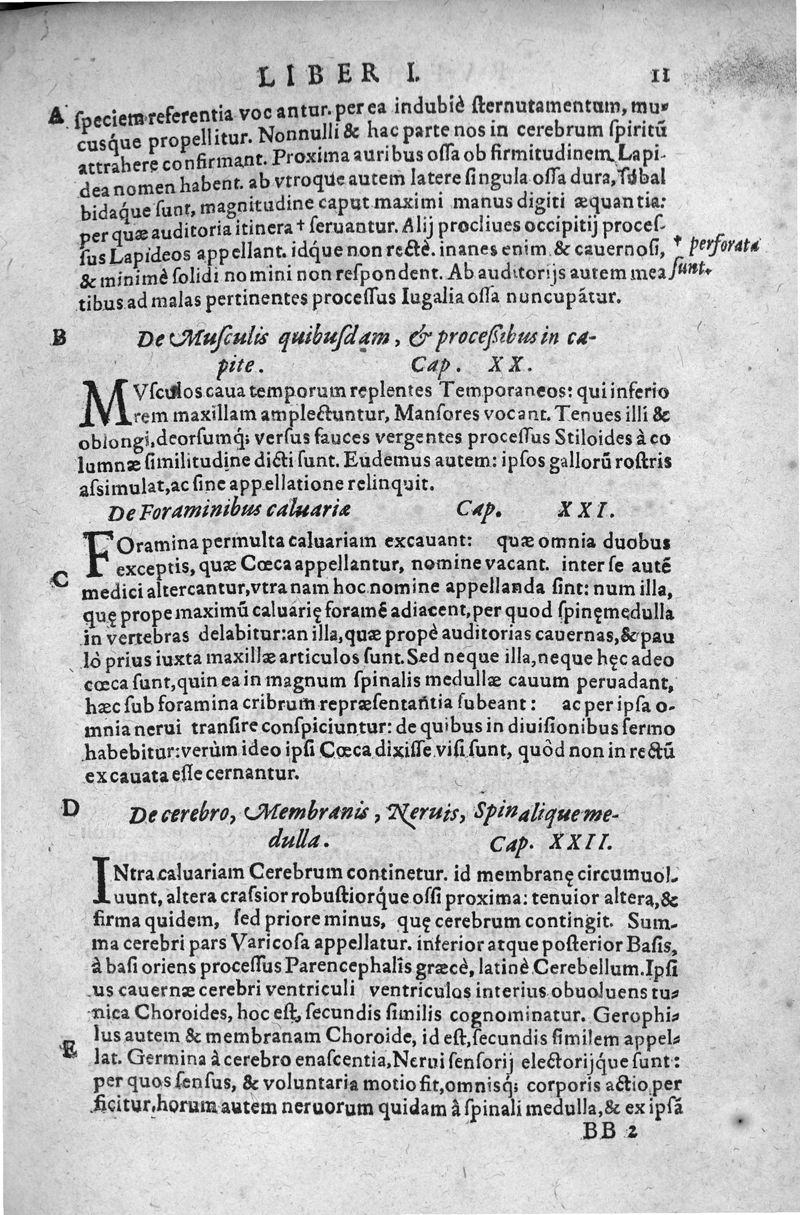 LIBER I. 11
A ſpeciem referentia vocantur. per ea indubiè ſternutamentum, mu-
cuſq́ue propellitur. Nonnulli & hac parte nos in cerebrum ſpiritũ
attrahere confirmant. Proxima auribus oſſa ob firmitudinem Lapi-
dea nomen habent. ab vtroque autem latere ſingula oſſa dura, ſubal
bidaq́ue ſunt, magnitudine caput maximi manus digiti æquantia:
per quæ auditoria itinera † ſeruantur. Alij procliues occipitij proceſ-
ſus Lapideos appellant. idq́ue non rectè. inanes enim & cauernoſi, † perforata
& minimè ſolidi nomini non reſpondent. Ab auditorijs autem mea ſunt.
tibus ad malas pertinentes proceſſus Iugalia oſſa nuncupãtur.
B De Muſculis quibuſdam, & proceſſibus in ca-
pite. Cap. XX.
MVſculos caua temporum replentes Temporaneos: qui inferio
rem maxillam amplectuntur, Manſores vocant. Tenues illi &
oblongi, deorſumq́; verſus fauces vergentes proceſſus Stiloides à co
lumnæ ſimilitudine dicti ſunt. Eudemus autem: ipſos gallorũ roſtris
aſsimulat, ac ſine appellatione relinquit.
De Foraminibus caluariæ Cap. XXI.
FOramina permulta caluariam excauant: quæ omnia duobus
exceptis, quæ Cœca appellantur, nomine vacant. inter ſe autẽ
C medici altercantur, vtra nam hoc nomine appellanda ſint: num illa,
quę prope maximũ caluarię foramẽ adiacent, per quod ſpinę medulla
in vertebras delabitur: an illa, quæ propè auditorias cauernas, & pau
lò prius iuxta maxillæ articulos ſunt. Sed neque illa, neque hęc adeo
cœca ſunt, quin ea in magnum ſpinalis medullæ cauum peruadant,
hæc ſub foramina cribrum repræſentantia ſubeant: ac per ipſa o-
mnia nerui tranſire conſpiciuntur: de quibus in diuiſionibus ſermo
habebitur: verùm ideo ipſi Cœca dixiſſe viſi ſunt, quòd non in rectũ
excauata eſſe cernantur.
D De cerebro, Membranis, Neruis, Spinalique me-
dulla. Cap. XXII.
INtra caluariam Cerebrum continetur. id membranę circumuol-
uunt, altera craſsior robuſtiorq́ue oſſi proxima: tenuior altera, &
firma quidem, ſed priore minus, quę cerebrum contingit. Sum-
ma cerebri pars Varicoſa appellatur. inferior atque poſterior Baſis,
à baſi oriens proceſſus Parencephalis græcè, latinè Cerebellum. Ipſi
us cauernæ cerebri ventriculi ventriculos interius obuoluens tu-
nica Choroides, hoc eſt, ſecundis ſimilis cognominatur. Gerophi-
lus autem & membranam Choroide, id eſt, ſecundis ſimilem appel-
E lat. Germina à cerebro enaſcentia, Nerui ſenſorij electorijq́ue ſunt:
per quos ſenſus, & voluntaria motio fit, omniſq́; corporis actio per
ficitur, horum autem neruorum quidam à ſpinali medulla, & ex ipſã
BB 2